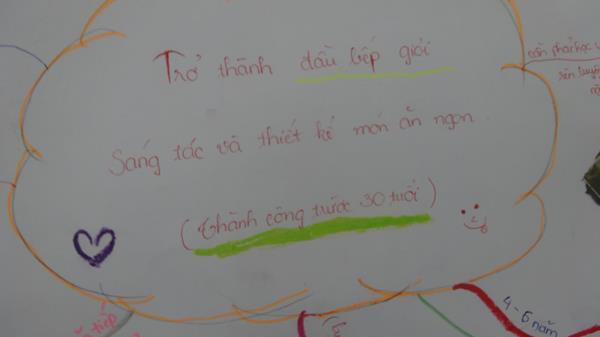 Trở thành đầu bếp giỏi
Sáng tác và thiết kế món ăn ngon.
(Thành công trước 30 tuổi)
cần phải học
rèn luyện
4-6 năm
tiếp